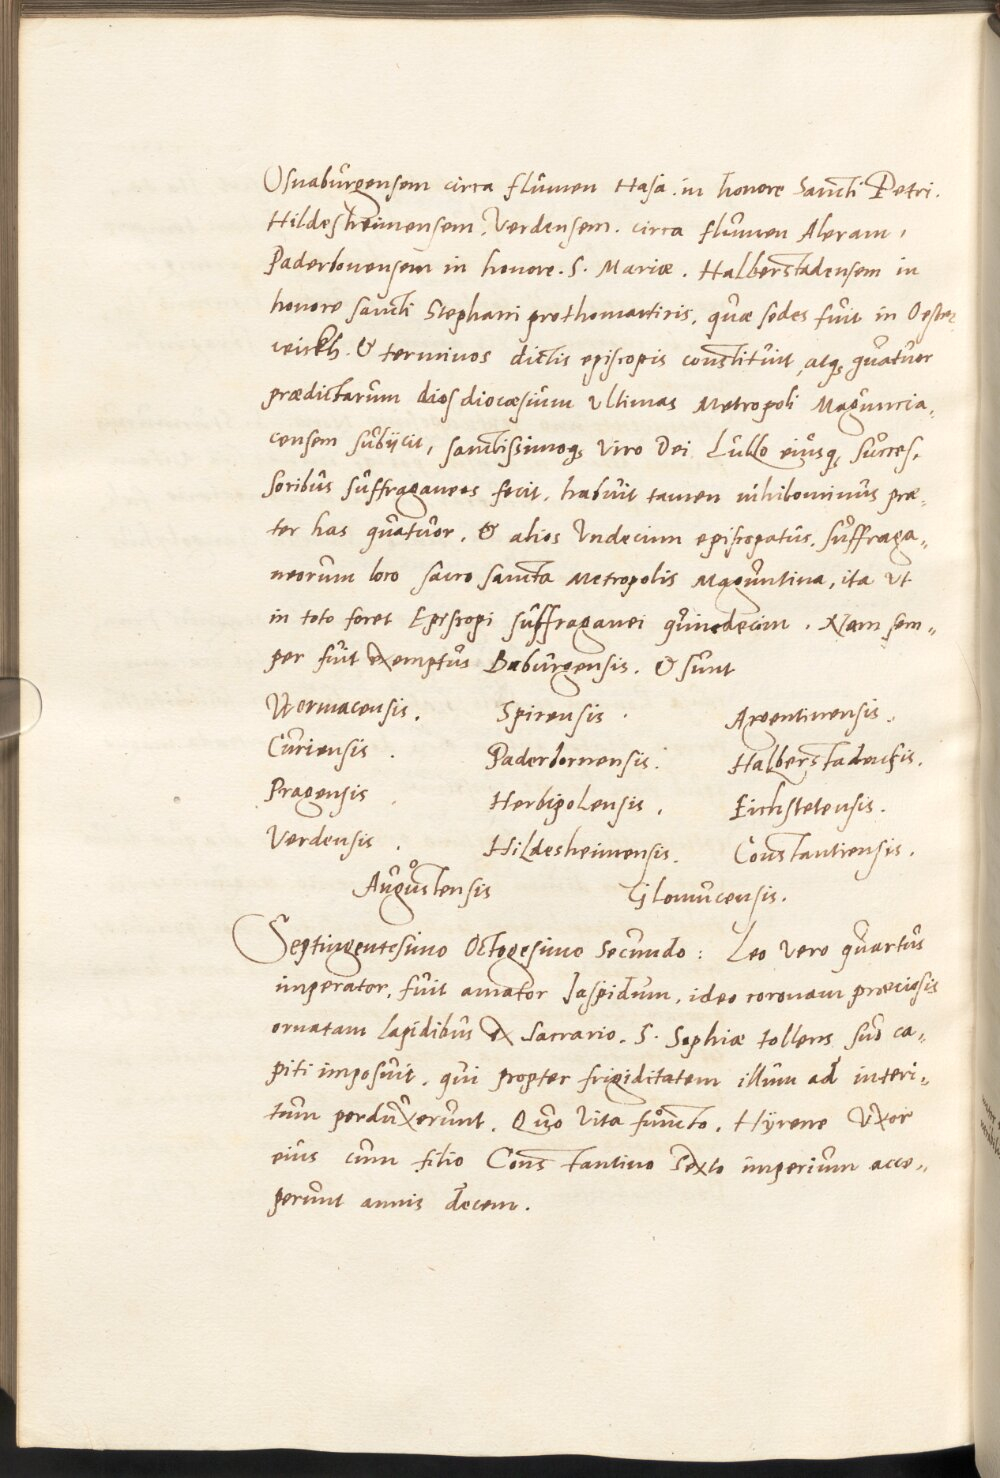 Osnabùrgensem circa flùmen Hasa. in honore Sancti Petri.
Hildesheimensem, Verdensem. circa flùmen Aleram,
Paderbonensem in honore. S. Mariæ. Halberstadensem in
honore sancti Stephani prothomartiris, qùæ sedes fùit in Oster,
veickh. & terminos dictis episcopis constitùit, atq, qùatùor
prædictarùm dios diocæsiùm ultimas Metropoli Magùncia,
censem sùbijcit, sanctissimoq, viro Dei Lùllo eiùsq, sùcces,
soribùs sùffraganeos fecit, habùit tamen nihilominùs præ,
ter has qùatùor, & alios Vndecim episcopatùs, sùffraga,,
neorùm loco sacro sancta Metropolis Magùntina, ita ùt
in toto foret Episcopi sùffraganei qùindecim. Nam sem,,
per fùit exemptùs Babùrgensis. & sùnt
Wormacensis. Spirensis. Argentinensis.
Cùriensis. Paderbornensis. Halberstadensis.
Pragensis. Herbipolensis. Eichstetensis.
Verdensis. Hildesheimensis. Constantiensis.
Aùgùstensis Olomùcensis.
Septingentesimo Octogesimo Secùndo: Leo vero qùartùs
imperator, fùit amator Iaspidùm, ideo coronam præciosis
ornatam lapidibùs ex Sacrario. S. Sophiæ tollens sùo ca,,
piti imposùit, qùi propter frigiditatem illùm ad interi,,
tùm perdùxerùnt. Qùo vita fùncto, Hÿrene Vxor
eiùs cùm filio Constantino Sexto imperiùm acce,,
perùnt annis decem.